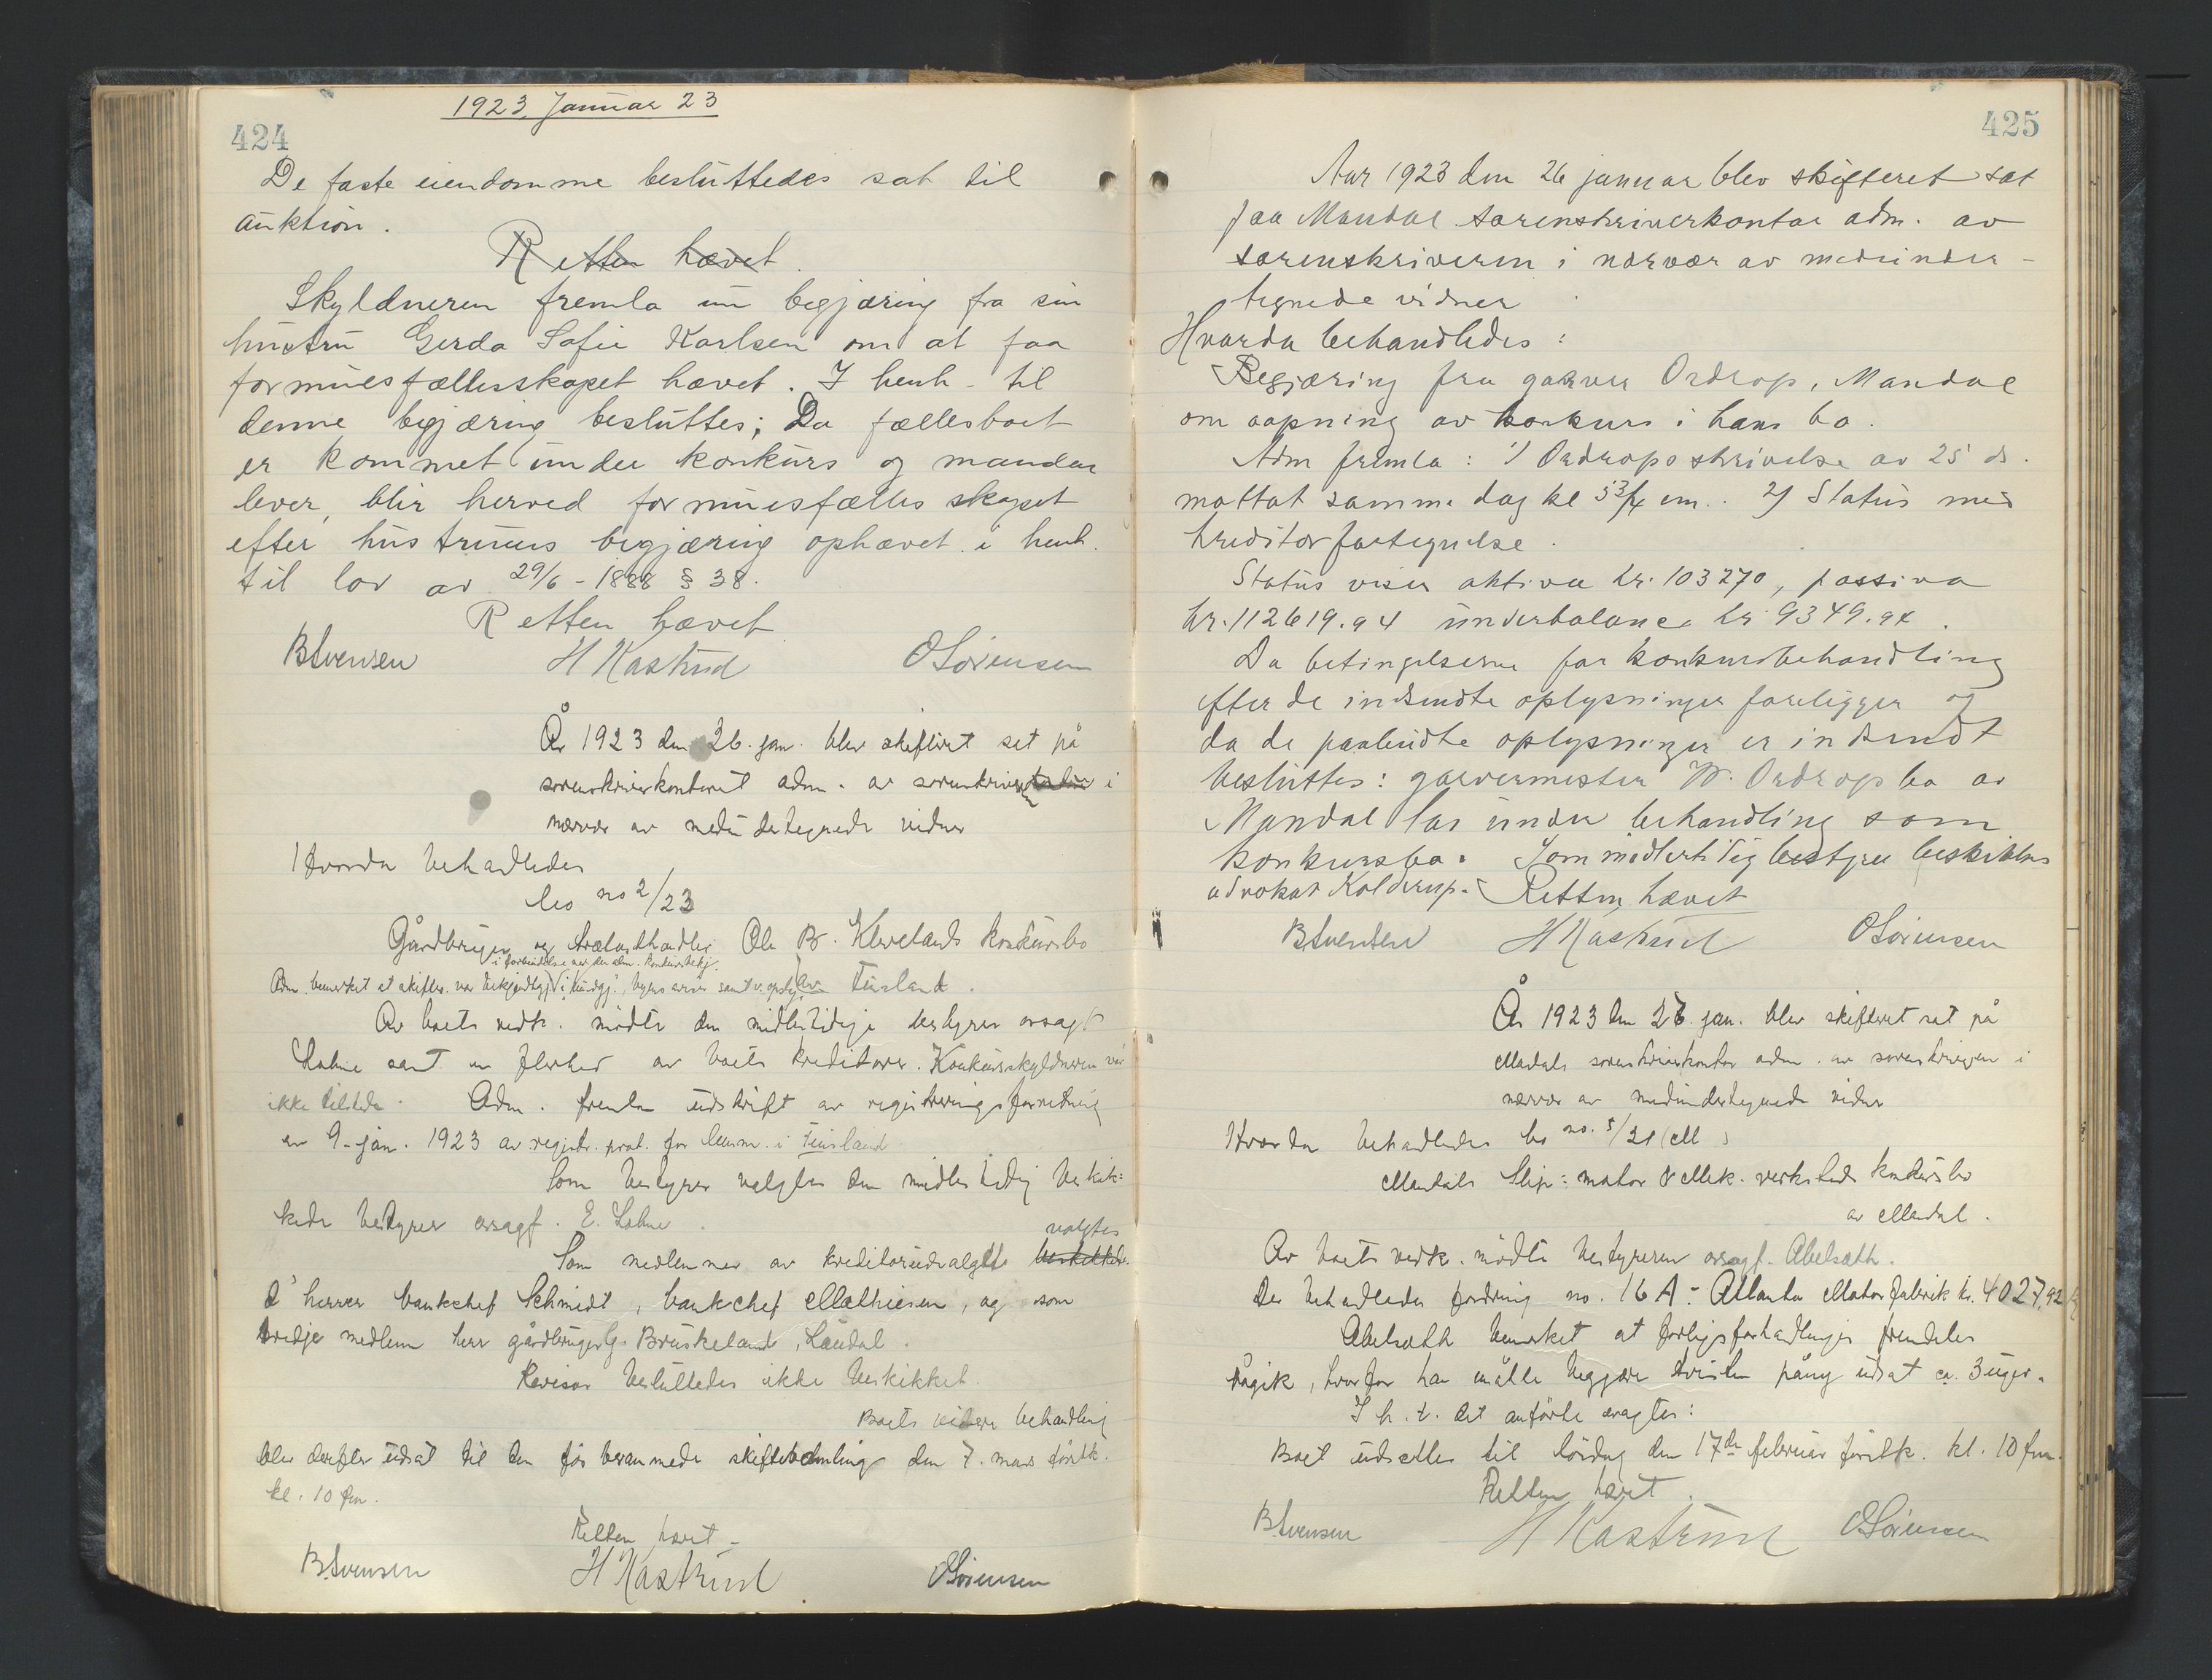 1923 Januar 23
424
De faste eiendomme besluttedes sat til
auktion.
Retten hævet.
Skyldneren fremla en begjæring fra sin
hustru Gerda Sofie Karlsen om at faa
formuesfællesskapet hævet. I henh. til
denne begjæring besluttes; Da fællesboet
er kommet under konkurs og manden
lever, blir herved formuesfællesskapet
efter hustruens begjæring ophævet i henh.
til lov av 29/6-1888 § 38.
Retten hævet
BSvensen H Kastrud OSörensen
År 1923 den 26. jan. blev skifteret sat på
sorenskriverkontoret adm. av sorenskriveren i
nærvær av medundertegnede vidner
Hvorda behandledes
bo no 2/23
Gårdbruger og trælasthandler Ole B. Klevelands konkursbo
i forbindelse med den alm. konkursbekj.
Adm. bemerket at skiftes. var bekjendtgj. i kundgj. av Finsland.
Av boets vedk. mödte den midlertidige bestyrer orsagf.
Lohne samt en flerhed av boets kreditorer. Konkursskyldneren var
ikke tilstede. Adm. fremla udskrift av registreringsforretning
av 9. jan. 1923 av registr. prot. for lensm. i Finsland
Som bestyrer valgtes den midlertidig beskik=
kede bestyrer orsagf. E. Lohne.
valgtes
Som medlemmer av kreditorudvalget beskikkedes
d' herrer bankchef Schmidt, bankchef Mathiesen, og som
tredje medlem herr gårdbruger G. Bruskeland, Laudal.
Revisor besluttedes ikke beskikket.
Boets videre behandling
blev derefter udsat til den för berammede skiftesamling den 7. mars förstk.
kl. 10 fm.
Retten hævet.
BSvensen H Kastrud OSörensen
425
Aar 1923 den 26 januar blev skifteret sat
paa Mandal sorenskriverkontor adm. av
sorenskriveren i nærvær av medunder-
tegnede vidner
Hvorda behandledes:
Begjæring fra garver Ordrop, Mandal
om aapning av konkurs i hans bo.
Adm fremla: 1/ Ordrops skrivelse av 25 ds.
mottat samme dag kl 5 3/4 em. 2/ Status med
kreditorfortegnelse.
Status viser aktiva kr. 103270, passiva
kr. 112619.94 underbalance kr 9349.94.
Da betingelserne for konkursbehandling
efter de indsendte oplysninger foreligger og
da de paabudte oplysninger er indsendt
besluttes: garvermester W. Ordrops bo av
Mandal tas under behandling som
konkursbo. Som midlertidig bestyrer beskikkes
advokat Kolderup. Retten hævet
BSvensen H Kastrud OSörensen
År 1923 den 27. jan. blev skifteret sat på
Mandals sorenskriverkontor adm. av sorenskriveren i
nærvær av medundertegnede vidner
Hvorda behandledes bo no. 5/21 (M)
Mandals Slip: motor & Mek. verksteds konkursbo
av Mandal.
Av boets vedk. mödte bestyreren orsagf. Abelsæth.
Der behandledes fordring no. 16 A: Atlanta Motorfabrik kr. 4027,92
Abelsæth bemerket at forligsforhandlinger fremdeles
pågik, hvorfor han måtte begjære tvisten påny udsat ca. 3 uger.
I h. t. det anförte vragtes:
Boet udsættes til lördag den 17de februar förstk. kl. 10 fm.
Retten hævet.
BSvensen H Kastrud OSörensen